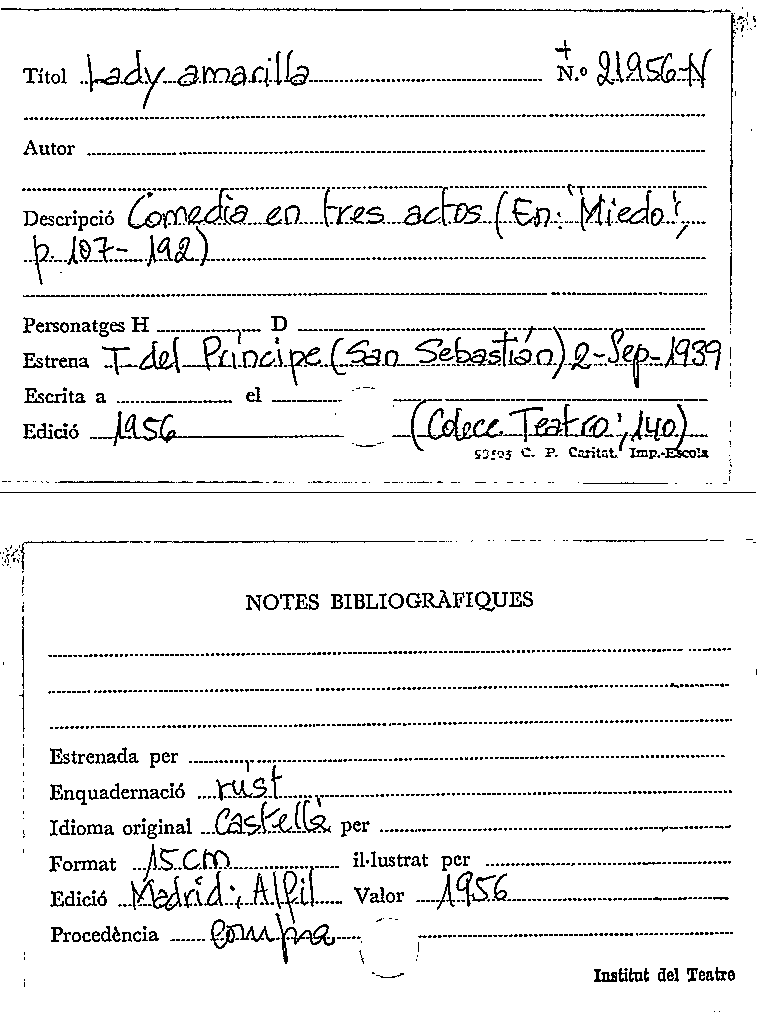 Títol Lady amarilla + N.º 21956-N
Autor
Descripció Comedia en tres actos (En: "Miedo",
p. 107-192)
Personatges H D
Estrena T. del Príncipe (San Sebastián) 2-Sep-1939
Escrita a el
Edició 1956 (Colecc. Teatro; 140)
C. P. Caritat. Imp.-Escola
NOTES BIBLIOGRÀFIQUES
Estrenada per
Enquadernació rúst
Idioma original Castellà per
Format 15 cm il·lustrat per
Edició Madrid; Alfil Valor 1956
Procedència compra
Institut del Teatre